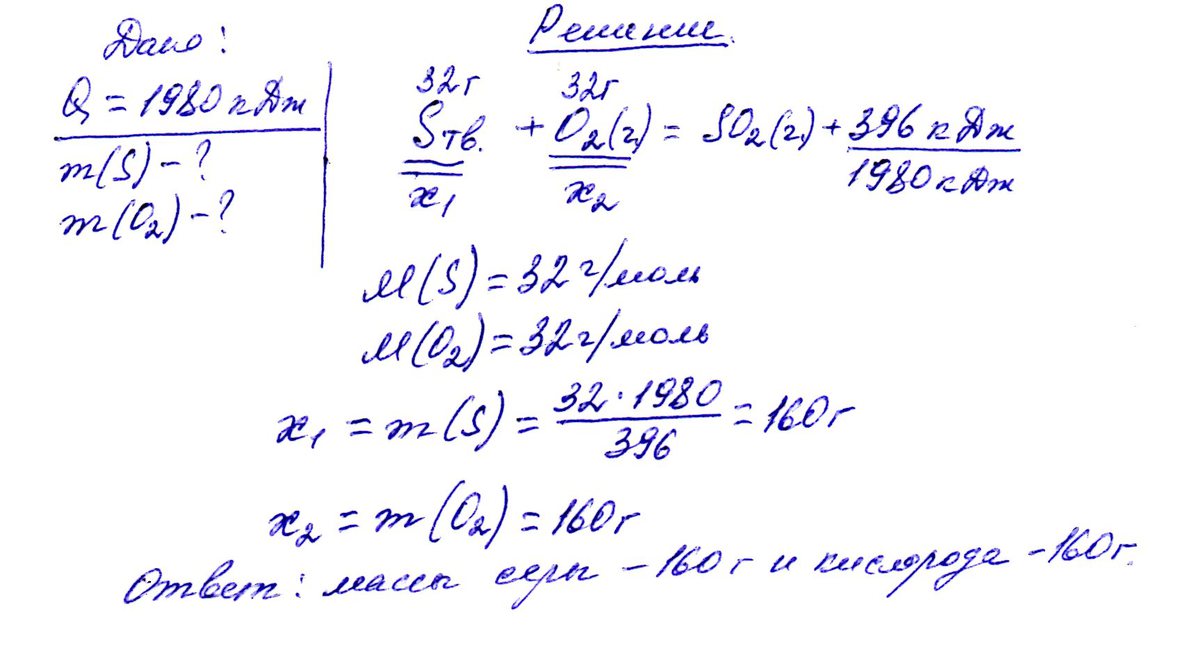 Дано:
Решение.
Q = 1980 кДж
m(S) – ?
m(O₂) – ?
32г 32г
Sтв. + O₂(г) = SO₂(г) + 396 кДж
x₁ x₂ 1980 кДж
M(S) = 32 г/моль
M(O₂) = 32 г/моль
x₁ = m(S) = 32 · 1980 / 396 = 160 г
x₂ = m(O₂) = 160 г
Ответ: массы серы – 160 г и кислорода – 160 г.